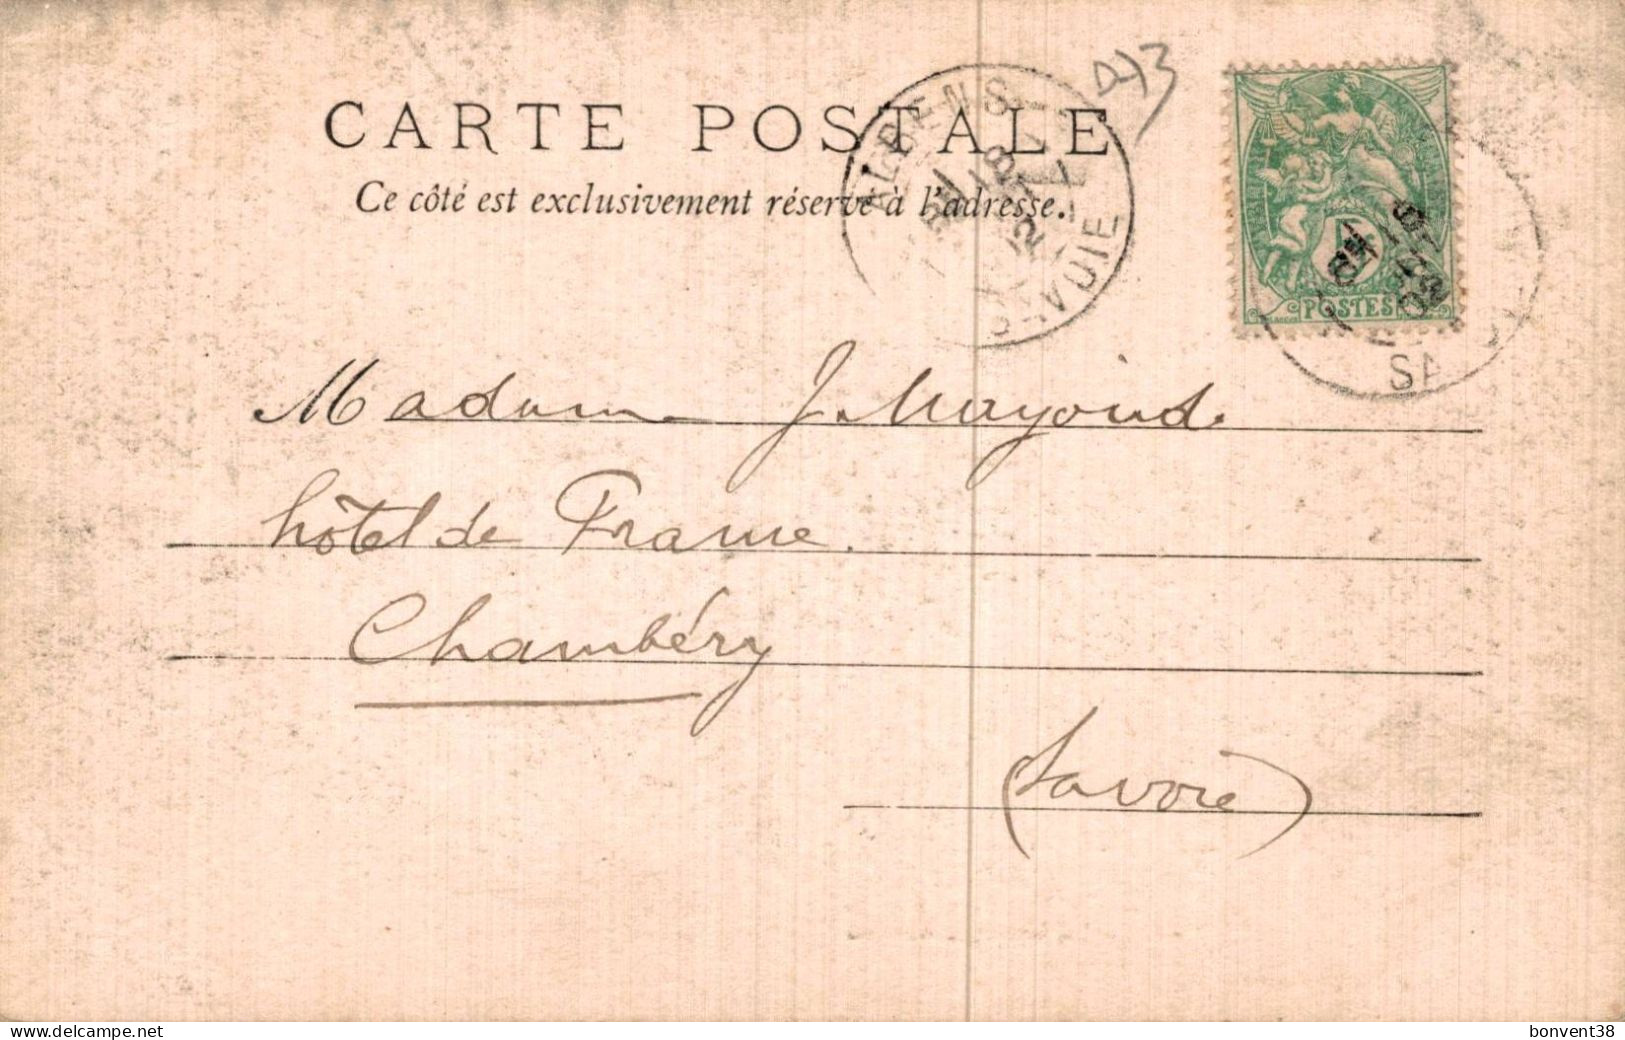 CARTE POSTALE
Ce côté est exclusivement réservé à l'adresse.
ALBENS
SAVOIE
POSTES
SA
Madame J. Mayoud.
hôtel de France.
Chambéry
(Savoie)
www.delcampe.net
bonvent38